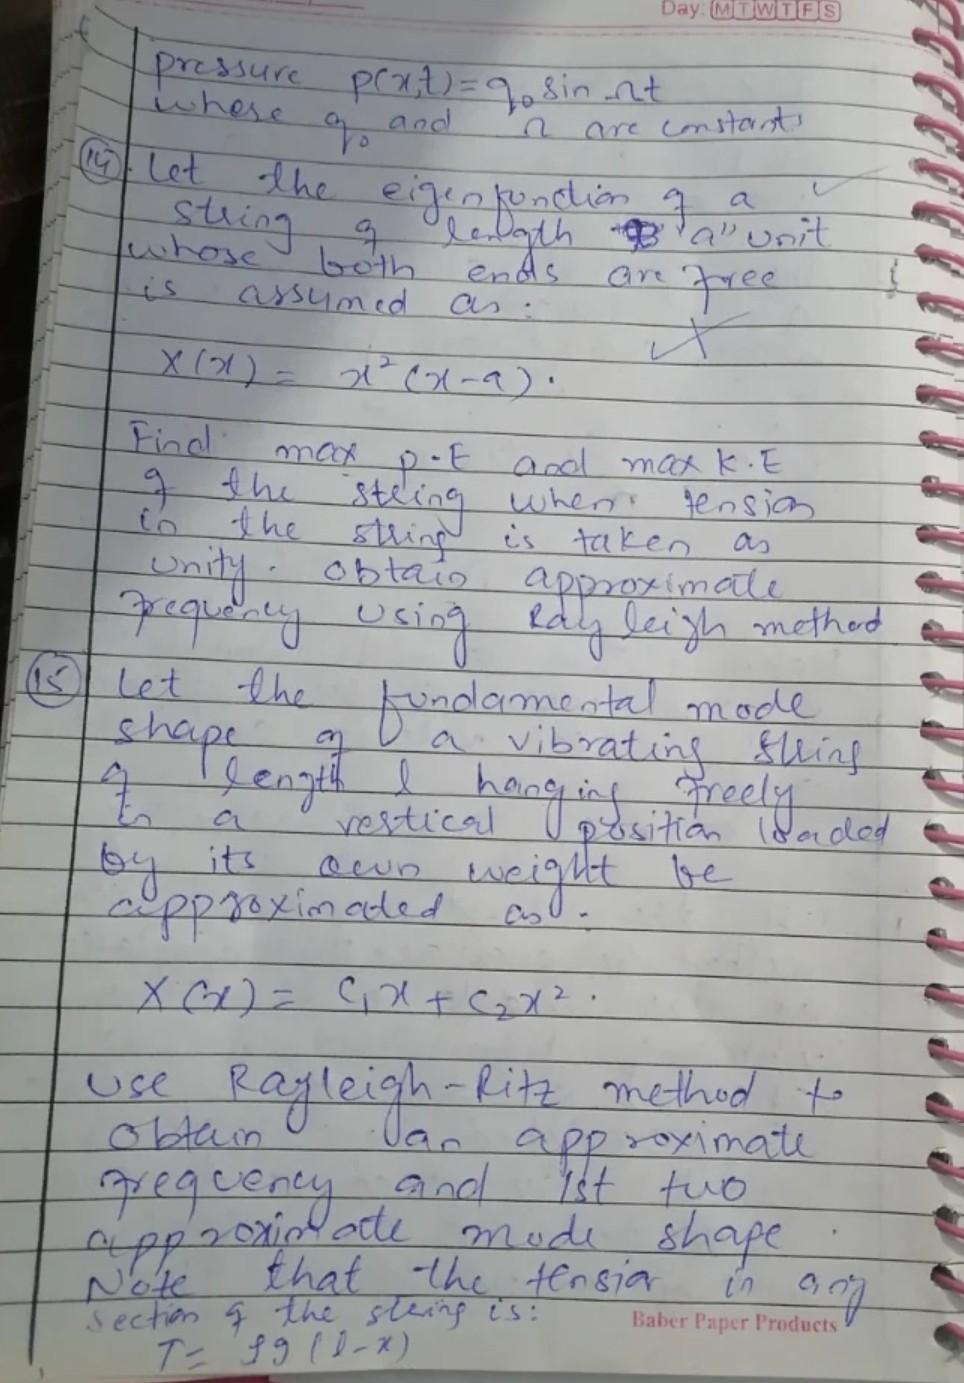 Day: M T W T F S
pressure p(x,t) = q₀ sin Ωt
where q₀ and Ω are constants
(14) Let the eigenfunction of a
string of length "a" unit
whose both ends are free
is assumed as:
X(x) = x²(x-a).
Find max P.E and max K.E
of the string when tension
in the string is taken as
unity. obtain approximate
frequency using Rayleigh method
(15) Let the fundamental mode
shape of a vibrating string
of length l hanging freely
in a vertical position loaded
by its own weight be
approximated as.
X(x) = C₁x + C₂x².
Use Rayleigh-Ritz method to
obtain an approximate
frequency and 1st two
approximate mode shape.
Note that the tension in any
section of the string is:
Baber Paper Products
T = ρg(l-x)